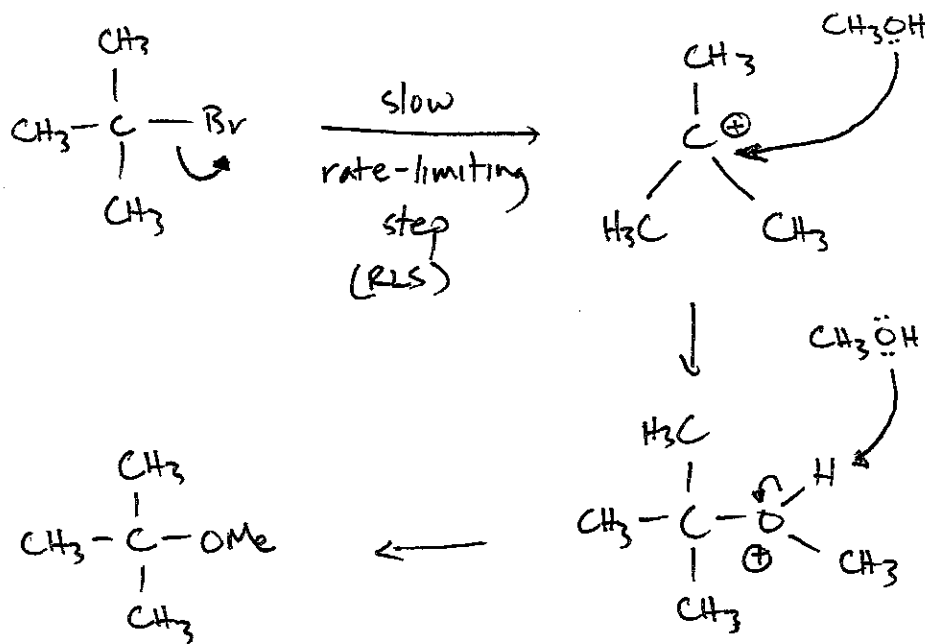 CH3
CH3-C-Br
CH3
slow
rate-limiting
step
(RLS)
CH3
C ⊕
H3C CH3
CH3ÖH
CH3ÖH
H3C
CH3-C-O H
⊕ CH3
CH3
CH3
CH3-C-OMe
CH3